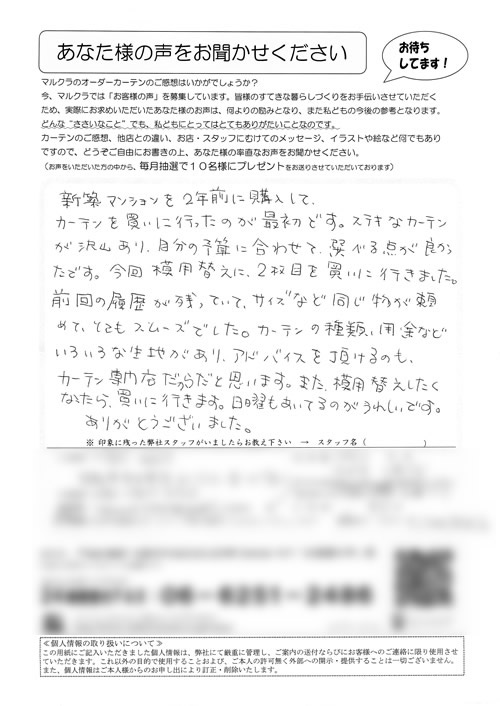 あなた様の声をお聞かせください
お待ち
してます！
マルクラのオーダーカーテンのご感想はいかがでしょうか？
今、マルクラでは「お客様の声」を募集しています。皆様のすてきな暮らしづくりをお手伝いさせていただく
ため、実際にお求めいただいたあなた様のお声は、何よりの励みとなり、また私どもの今後の参考となります。
どんな“ささいなこと”でも、私どもにとってはとてもありがたいことなのです。
カーテンのご感想、他店との違い、お店・スタッフにむけてのメッセージ、イラストや絵など何でもあり
ですので、どうぞご自由にお書きの上、あなた様の率直なお声をお聞かせください。
（お声をいただいた方の中から、毎月抽選で１０名様にプレゼントをお送りさせていただいております）
新築マンションを2年前に購入して、
カーテンを買いに行ったのが最初です。ステキなカーテン
が沢山あり、自分の予算に合わせて、選べる点が良かっ
たです。今回模用替えに、2枚目を買いに行きました。
前回の履歴が残っていて、サイズなど同じ物が頼
めて、とてもスムーズでした。カーテンの種類、用途など
いろいろな生地があり、アドバイスを頂けるのも、
カーテン専門店だからだと思います。また、模用替えしたく
なったら、買いに行きます。日曜もあいてるのがうれしいです。
ありがとうございました。
※ 印象に残った弊社スタッフがいましたらお教え下さい → スタッフ名（ ）
06-6251-2486
≪個人情報の取り扱いについて≫
この用紙にご記入いただきました個人情報は、弊社にて厳重に管理し、ご案内の送付ならびにお客様へのご連絡に限り使用させ
ていただきます。これ以外の目的で使用することおよび、ご本人の許可無く外部への開示・提供することは一切ございません。
また、個人情報はご本人様からのお申し出により訂正・削除いたします。